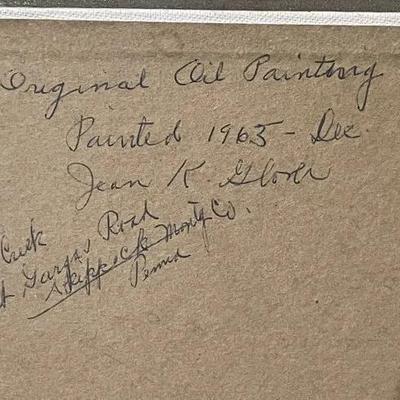 Original Oil Painting
Painted 1965 - Dec.
Jean K. Glover
Creek
Road
Skippack Montg Co.
Penna